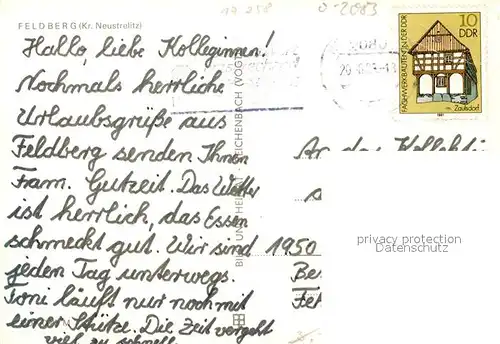 17 258
o-2083
FELDBERG (Kr. Neustrelitz)
Hallo, liebe Kolleginnen!
Nochmals herrliche
Urlaubsgrüße aus
Feldberg senden Ihnen
Fam. Gutzeit. Das Wetter
ist herrlich, das Essen
schmeckt gut. Wir sind
jeden Tag unterwegs.
Toni läuft nur noch mit
einer Stütze. Die Zeit vergeht
viel zu schnell.
BILD UND HEIMAT REICHENBACH (VOGTL)
FACHWERKBAUTEN IN DER DDR
10
DDR
Zaulsdorf
1981
An das Kollekti
1950
Be
privacy protection
Datenschutz